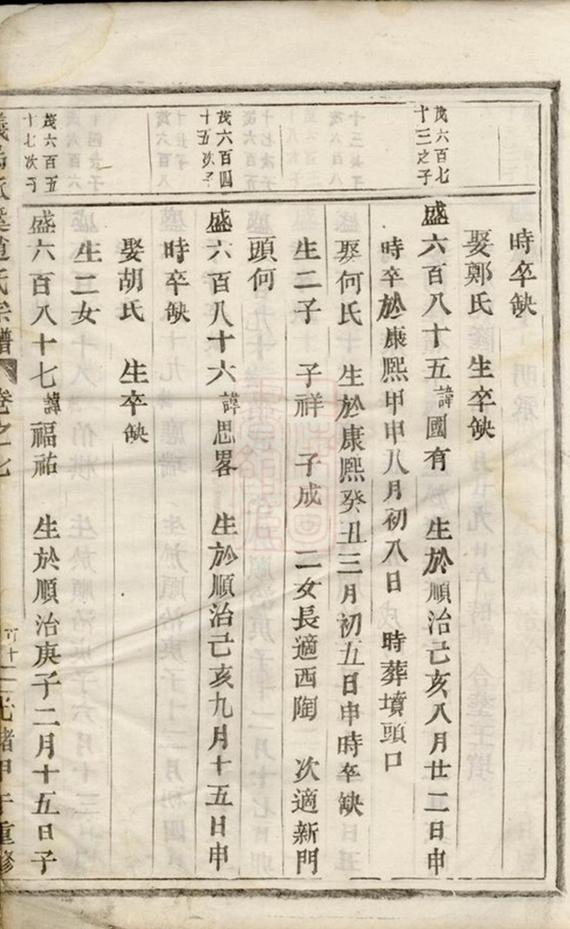 時卒缺
娶鄭氏 生卒缺
茂六百七
十三之子
盛六百八十五諱國有 生於順治己亥八月廿二日申
時卒於康熙甲申八月初八日 時葬墳頭口
娶何氏 生於康熙癸丑三月初五日申時卒缺
生二子 子祥 子成 二女長適西陶 次適新門
頭何
茂六百四
十五次子
盛六百八十六諱思畧 生於順治己亥九月十五日申
時卒缺
娶胡氏 生卒缺
生二女
茂六百五
十七次子
盛六百八十七諱福祐 生於順治庚子二月十五日子
氏宗譜 卷之七 光緒甲午重修